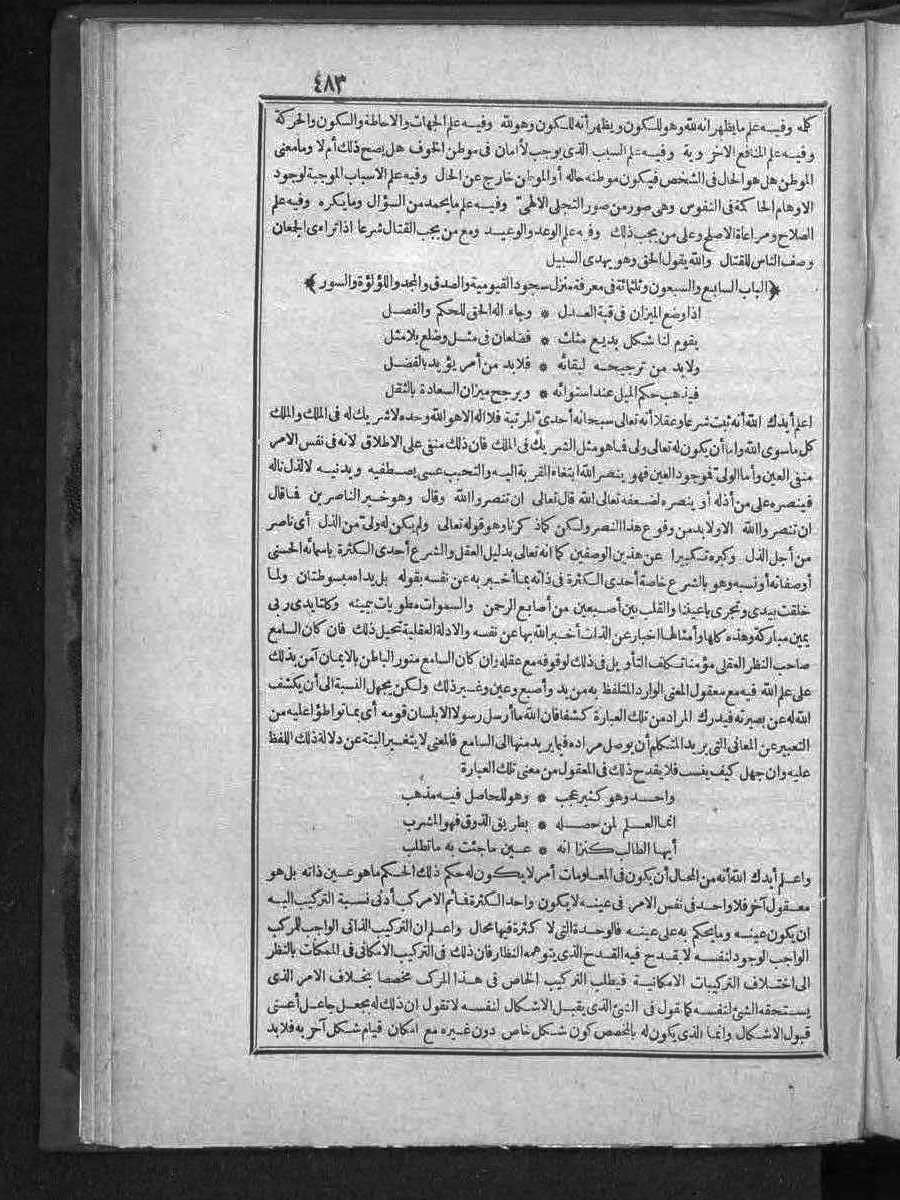 ٤٨٣
كله وفيه علم ما يظهر أنه لله وهو للكون ويظهر أنه للكون وهو لله وفيه علم الجهات والاحاطة والسكون والحركة
وفيه علم المنافع الاخروية وفيه علم السبب الذي يوجب الأمان في موطن الخوف هل يصح ذلك أم لا وما معنى
الموطن هل هو الحال في الشخص فيكون موطنه حاله أو الموطن خارج عن الحال وفيه علم الاسباب الموجبة لوجود
الاوهام الحاكمة في النفوس وهي صور من صور التجلي الالهي وفيه علم ما يحمد من السؤال وما يكره وفيه علم
الصلاح ومراعاة الاصلح وعلى من يجب ذلك وفيه علم الوعد والوعيد ومع من يجب القتال شرعا اذا تراءى الجمعان
وصف الناس للقتال والله يقول الحق وهو يهدى السبيل
﴿الباب السابع والسبعون وثلثمائة في معرفة منزل سجود القيومية والصدق والمجد واللؤلؤة والسور﴾
اذا وضع الميزان في قبة العدل * وجاء اله الحق للحكم والفصل
يقوم لنا شكل بديع مثلث * فضلعان في مثل وضلع بلا مثل
ولا بد من ترجيحه لبقائه * فلا بد من أمر يؤيد بالفضل
فيذهب حكم الميل عند استوائه * ويرجح ميزان السعادة بالثقل
اعلم أيدك الله أنه ثبت شرعا وعقلا أنه تعالى سبحانه أحدي المرتبة فلا اله الا هو الله وحده لا شريك له في الملك والملك
كل ما سوى الله وأما أن يكون له تعالى ولي فما هو مثل الشريك في الملك فان ذلك منفي على الاطلاق لانه في نفس الامر
منفي العين وأما الولي فموجود العين فهو ينصر الله ابتغاء القربة اليه والتحبب عسى يصطفيه ويدنيه لا لذل ناله
فينصره على من أذله أو ينصره لضعفه تعالى الله قال تعالى ان تنصروا الله وقال وهو خير الناصرين فما قال
ان تنصروا الله الا ولا بد من وقوع هذا النصر ولكن كما ذكرناه وهو قوله تعالى ولم يكن له ولي من الذل أي ناصر
من أجل الذل وكبره تكبيرا عن هذين الوصفين كما انه تعالى بدليل العقل والشرع أحدي الكثرة باسمائه الحسنى
أو صفاته أو نسبه وهو بالشرع خاصة أحدي الكثرة في ذاته بما أخبر به عن نفسه بقوله بل يداه مبسوطتان ولما
خلقت بيدي وتجري باعيننا والقلب بين أصبعين من أصابع الرحمن والسموات مطويات بيمينه وكلتا يدي ربي
يمين مباركة وهذه كلها وأمثالها اخبار عن الذات أخبر الله بها عن نفسه والادلة العقلية تحيل ذلك فان كان السامع
صاحب النظر العقلي مؤمنا تكلف التأويل في ذلك لوقوفه مع عقله وان كان السامع منور الباطن بالايمان آمن بذلك
على علم الله فيه مع معقول المعنى الوارد المتلفظ به من يد وأصبع وعين وغير ذلك ولكن يجهل النسبة الى أن يكشف
الله له عن بصيرته فيدرك المراد من تلك العبارة كشفا فان الله ما أرسل رسولا الا بلسان قومه أي بما تواطؤا عليه من
التعبير عن المعاني التي يريد المتكلم أن يوصل مراده فيما يريد منها الى السامع فالمعنى لا يتغير البتة عن دلالة ذلك اللفظ
عليه وان جهل كيف ينسب فلا يقدح ذلك في المعقول من معنى تلك العبارة
واحد وهو كثير عجب * وهو للحاصل فيه مذهب
انما العلم لمن حصله * بطريق الذوق فهو المشرب
أيها الطالب كنزا انه * عين ما جئت به ما تطلب
واعلم أيدك الله أنه من المحال أن يكون في المعلومات أمر لا يكون له حكم ذلك الحكم ما هو عين ذاته بل هو
معقول آخر فلا واحد في نفس الامر في عينه لا يكون واحد الكثرة فما ثم الا مركب أدنى نسبة التركيب اليه
ان يكون عينه وما يحكم به على عينه فالوحدة التي لا كثرة فيها محال واعلم ان التركيب الذاتي الواجب للمركب
الواجب الوجود لنفسه لا يقدح فيه القدح الذي يتوهمه النظار فان ذلك في التركيب الامكاني في الممكنات بالنظر
الى اختلاف التركيبات الامكانية فيطلب التركيب الخاص في هذا المركب مخصصا بخلاف الامر الذي
يستحقه الشئ لنفسه كما تقول في الشئ الذي يقبل الاشكال لنفسه لا تقول ان ذلك له بجعل جاعل أعني
قبول الاشكال وانما الذي يكون له بالمخصص كون شكل خاص دون غيره مع امكان قيام شكل آخر به فلا بد